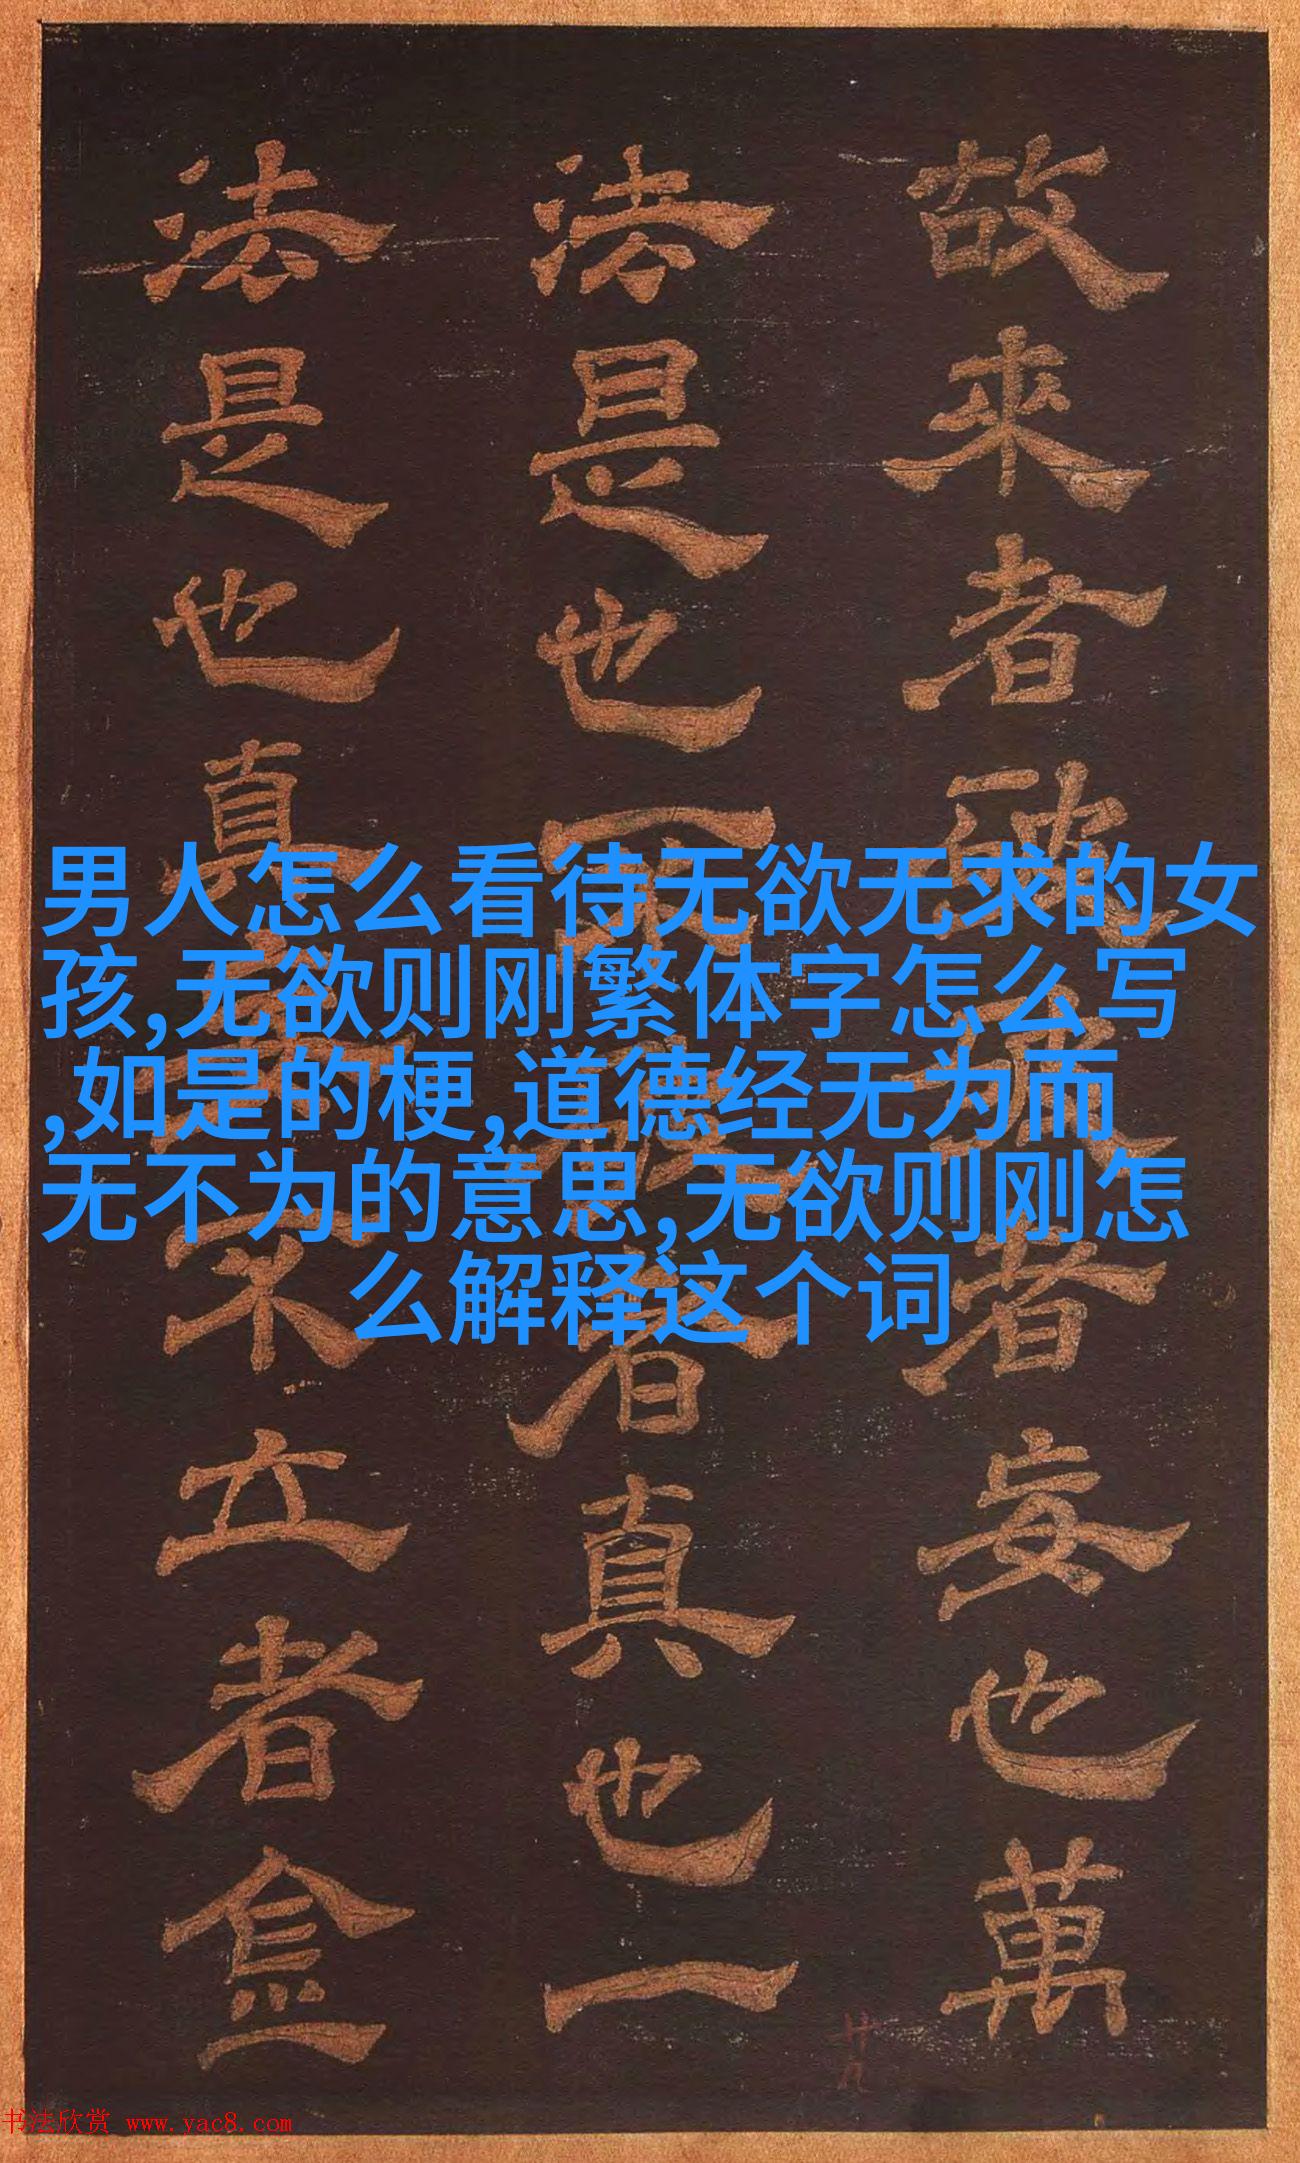 故來者者妄也萬
法是也者真也一
法是也真不立者
男人怎么看待无欲无求的女
孩,无欲则刚繁体字怎么写
,如是的梗,道德经无为而
无不为的意思,无欲则刚怎
么解释这个词
廿九
书法欣赏 www.yac8.com